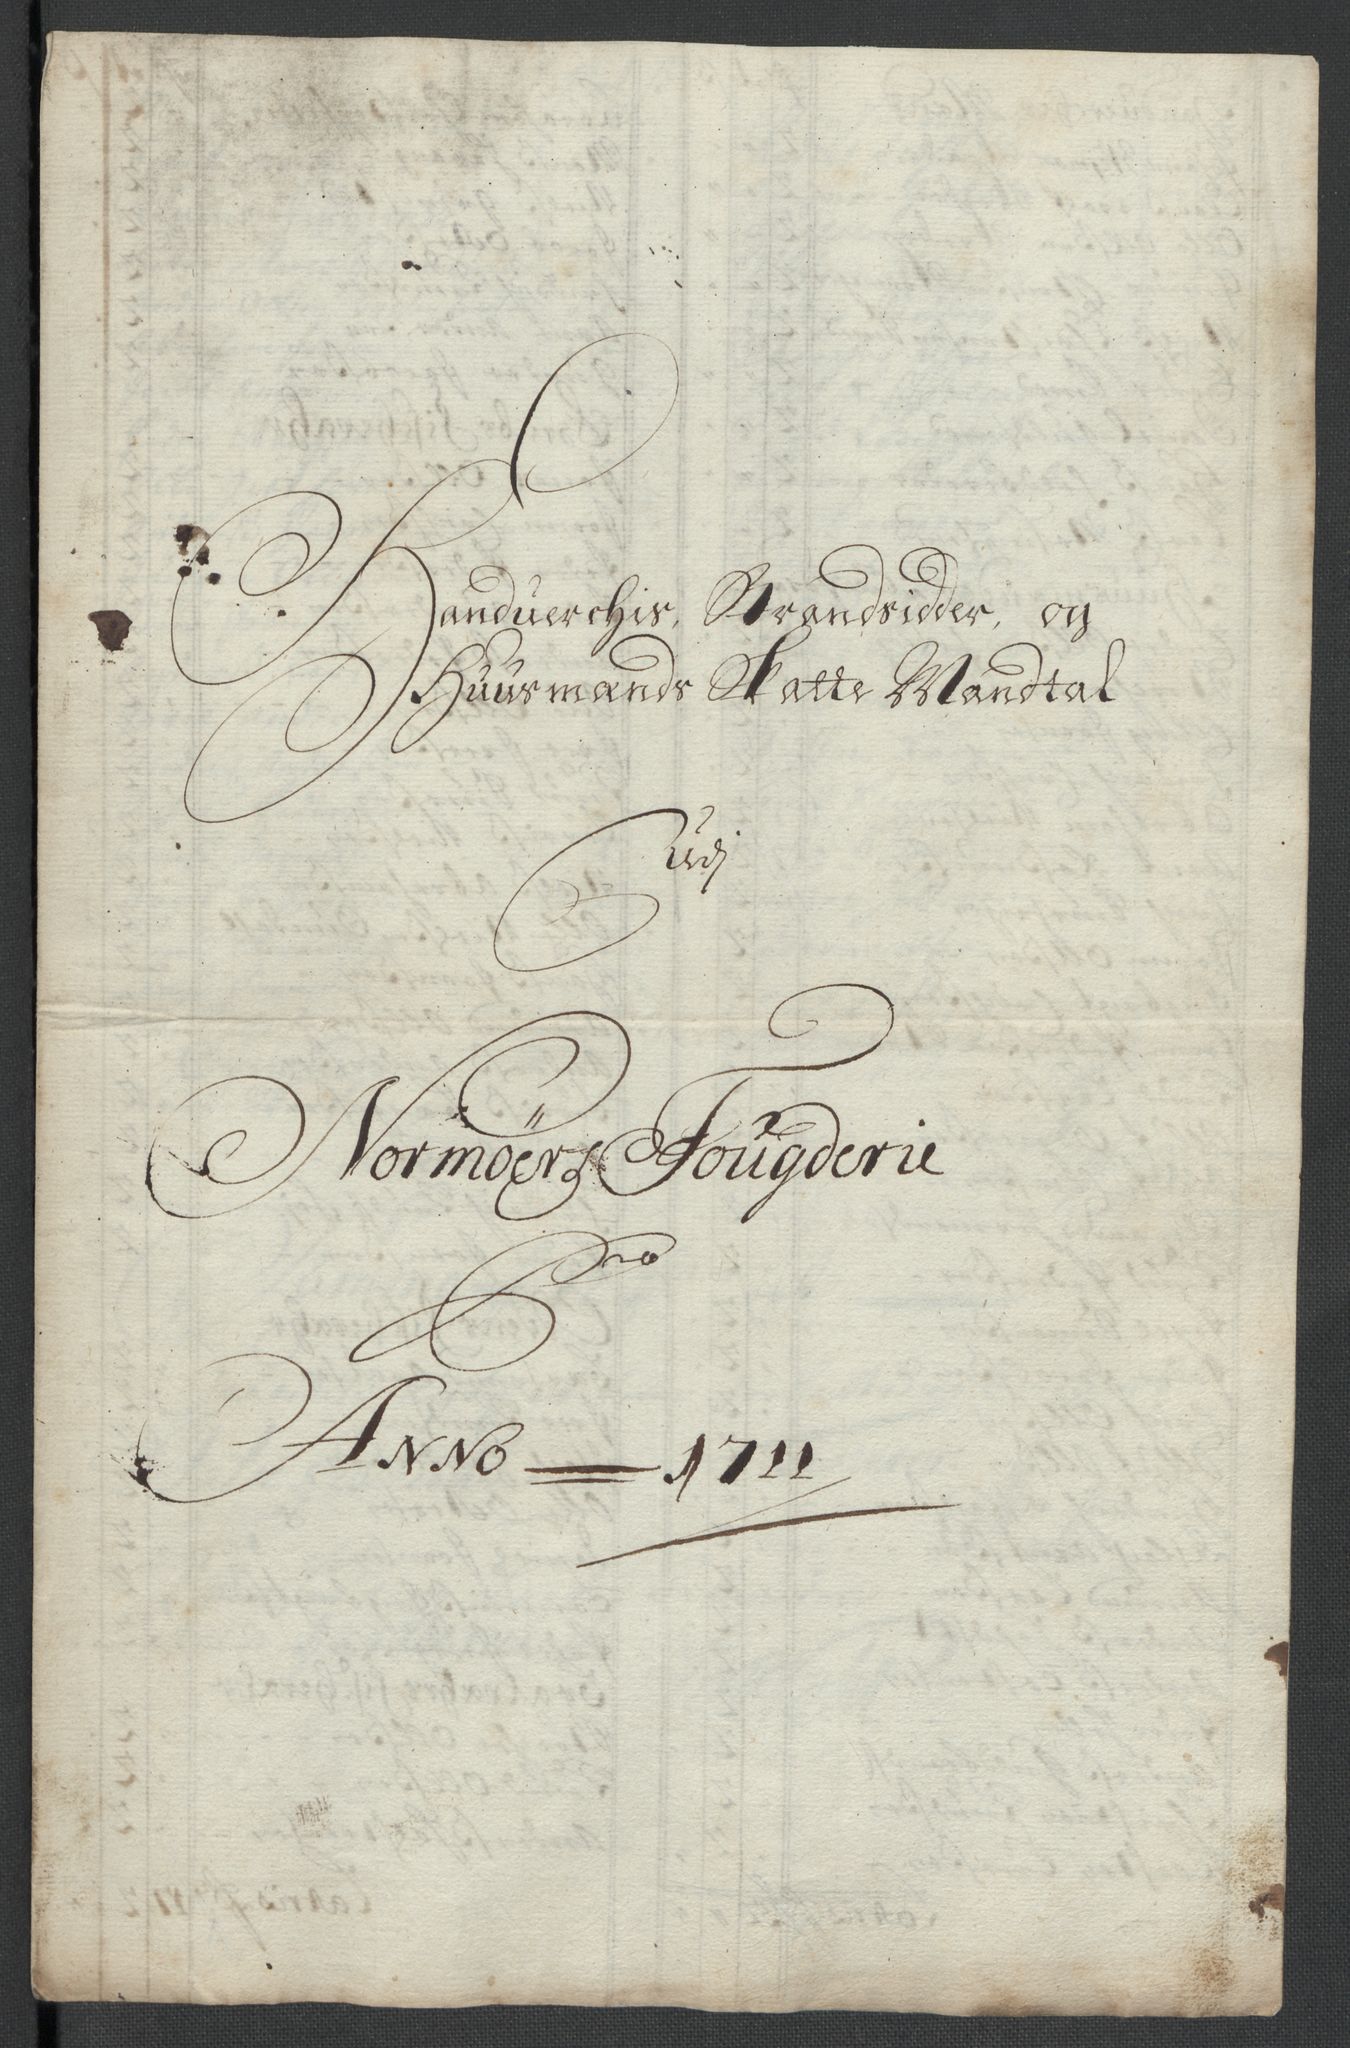 Handuerchis, Strandsidder, og
Huusmænds Skatte Mandtal
Udj
Normöers Fougderie
Pro
Anno 1711